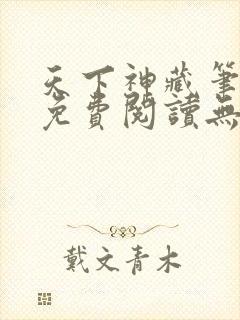 天下神藏筆
免費閱讀無
戴文青木